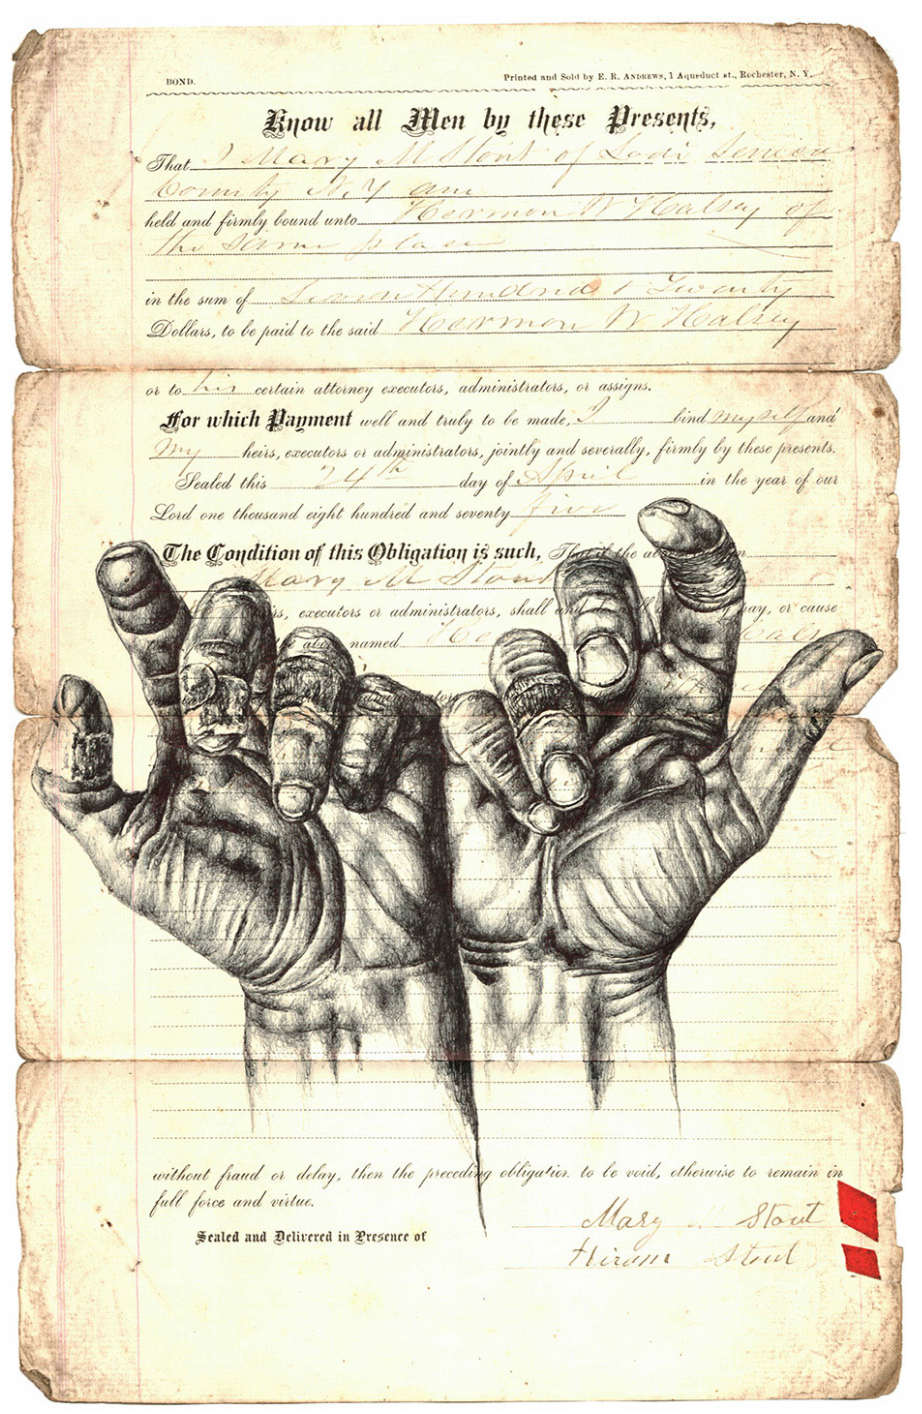 BOND.
Printed and Sold by E. R. ANDREWS, 1 Aqueduct st., Rochester, N. Y.
Know all Men by these Presents,
That I Mary M Stout of Lodi Seneca
County N.Y am
held and firmly bound unto Hermon W Halsey of
the same place
in the sum of Hundred & Twenty
Dollars, to be paid to the said Hermon W Halsey
or to his certain attorney executors, administrators, or assigns.
For which Payment well and truly to be made, I bind myself and
My heirs, executors or administrators, jointly and severally, firmly by these presents.
Sealed this 24th day of April in the year of our
Lord one thousand eight hundred and seventy five
The Condition of this Obligation is such, That if the
Mary M Stout
executors or administrators, shall and pay, or cause
above named
without fraud or delay, then the preceding obligation to be void, otherwise to remain in
full force and virtue.
Sealed and Delivered in Presence of
Mary M Stout
Hiram Stout